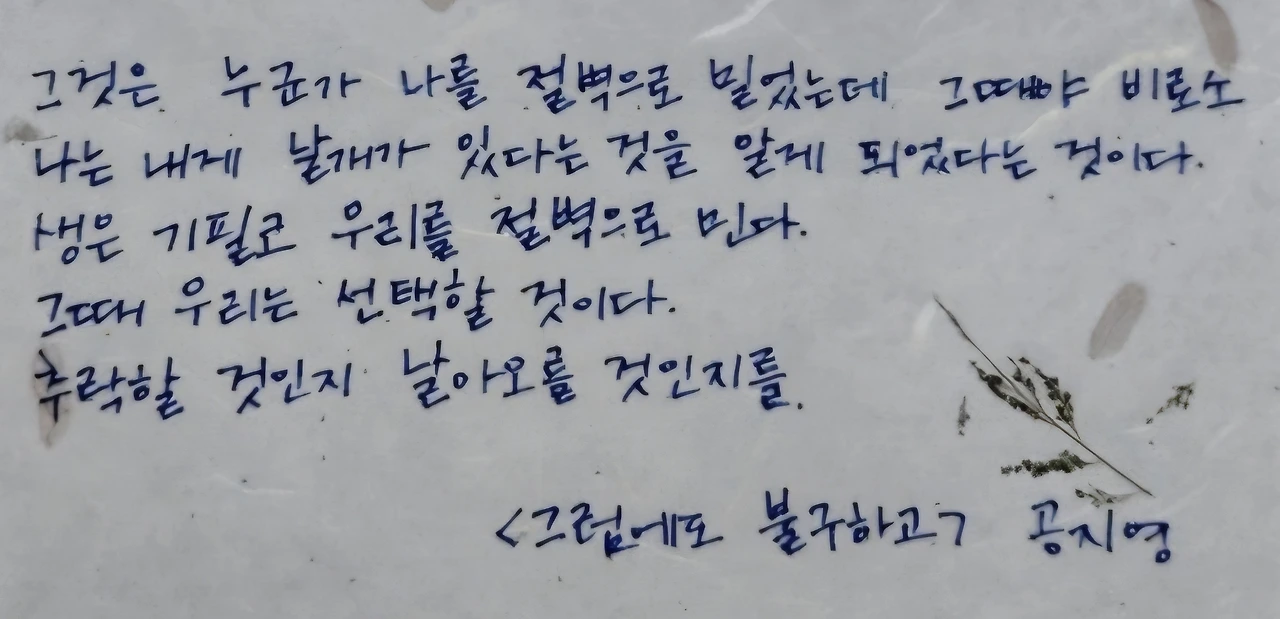 그것은 누군가 나를 절벽으로 밀었는데 그때야 비로소
나는 내게 날개가 있다는 것을 알게 되었다는 것이다.
생은 기필코 우리를 절벽으로 민다.
그때 우리는 선택할 것이다.
추락할 것인지 날아오를 것인지를.
<그럼에도 불구하고> 공지영